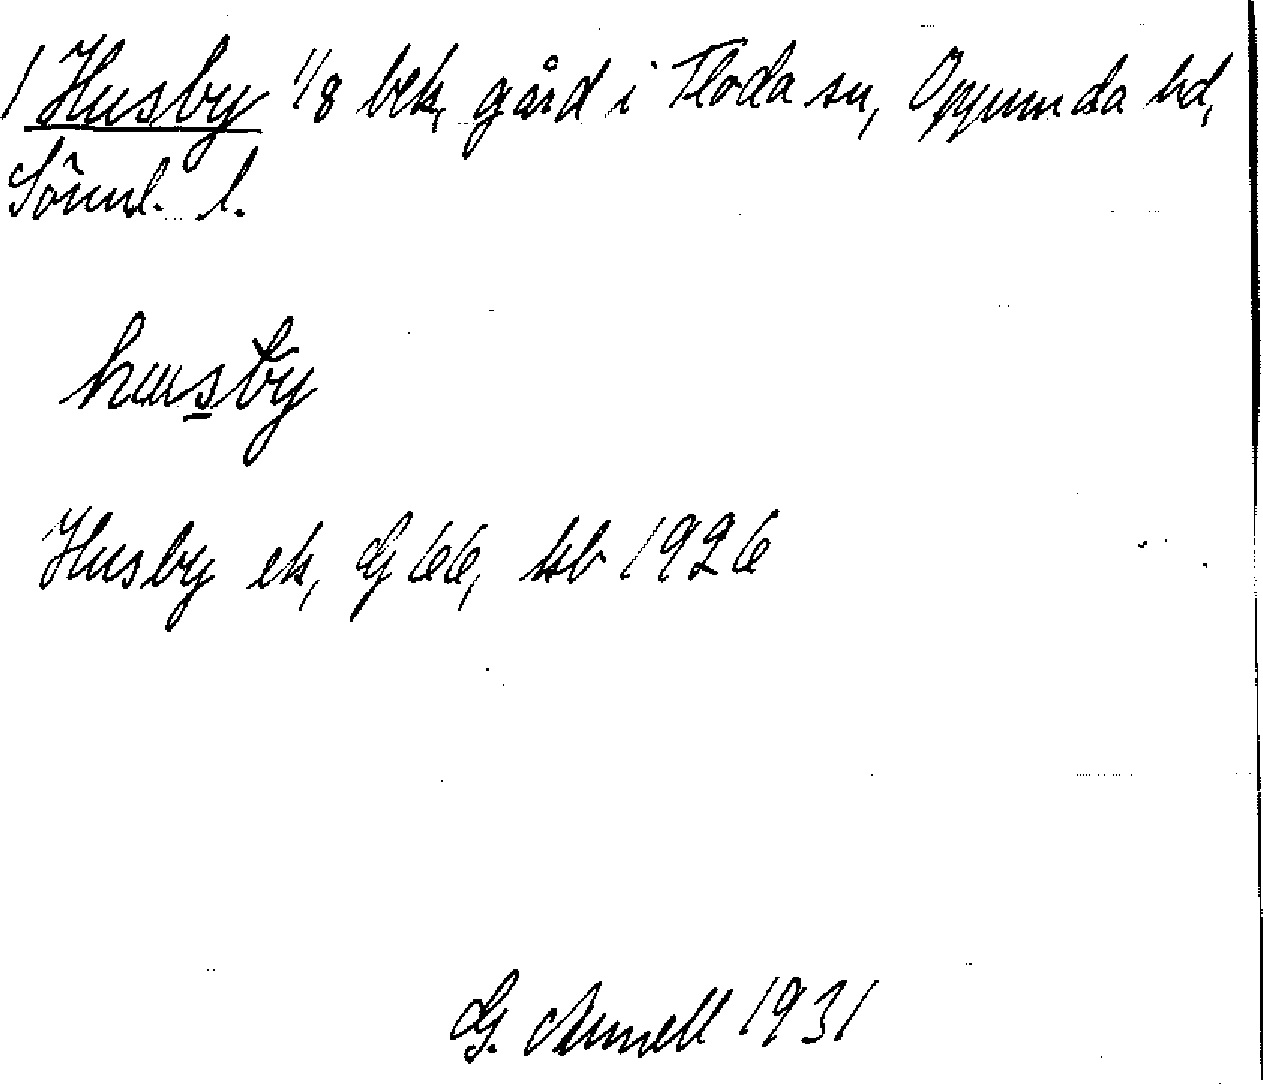 1 Husby 1/8 bek, gård i Floda sn, Oppunda hd,
Sörml. l.
husby
Husby ek, G 66, kb 1926
G. Arnell 1931